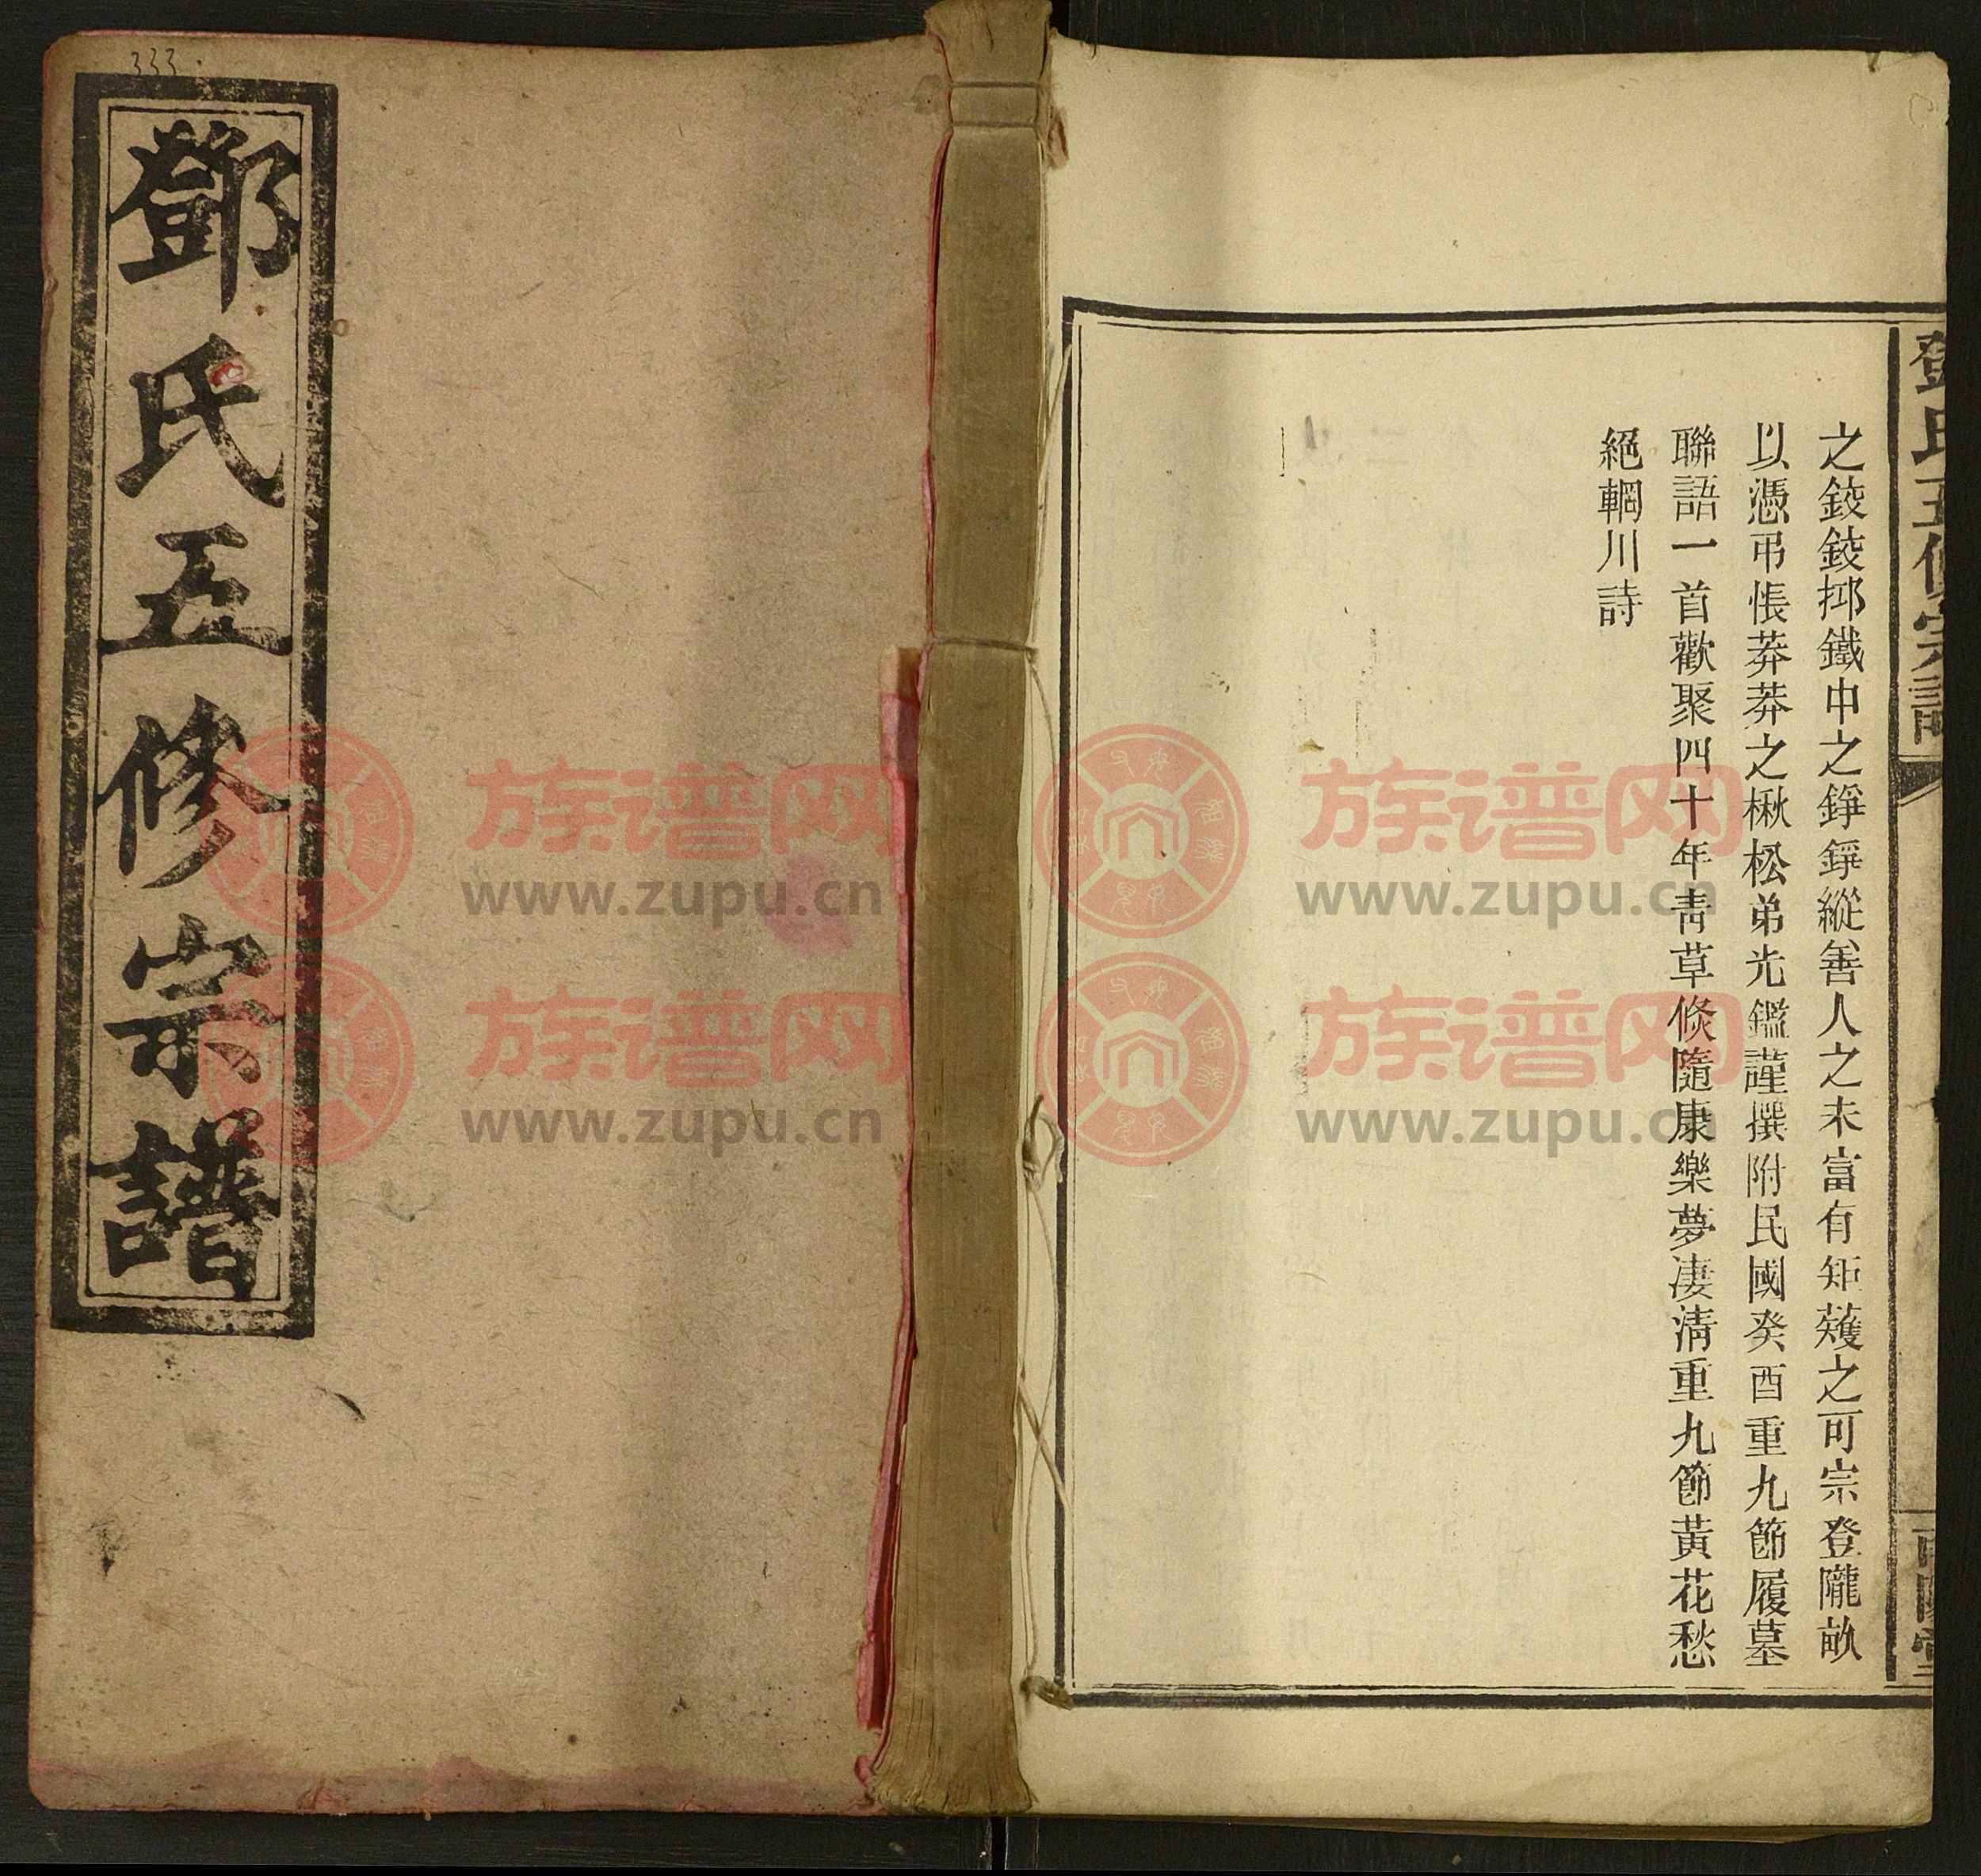 333
鄧氏五修宗譜
之鉸鉸抑鐵中之錚錚縱善人之未富有矩矱之可宗登隴畝
以憑弔悵莽莽之楸松弟光鑑謹撰附民國癸酉重九節履墓
聯語一首歡聚四十年靑草倏隨康樂夢凄淸重九節黃花愁
絕輞川詩
鄧氏五修宗譜
南陽堂
族谱网
www.zupu.cn
族谱网
www.zupu.cn
族谱网
www.zupu.cn
族谱网
www.zupu.cn